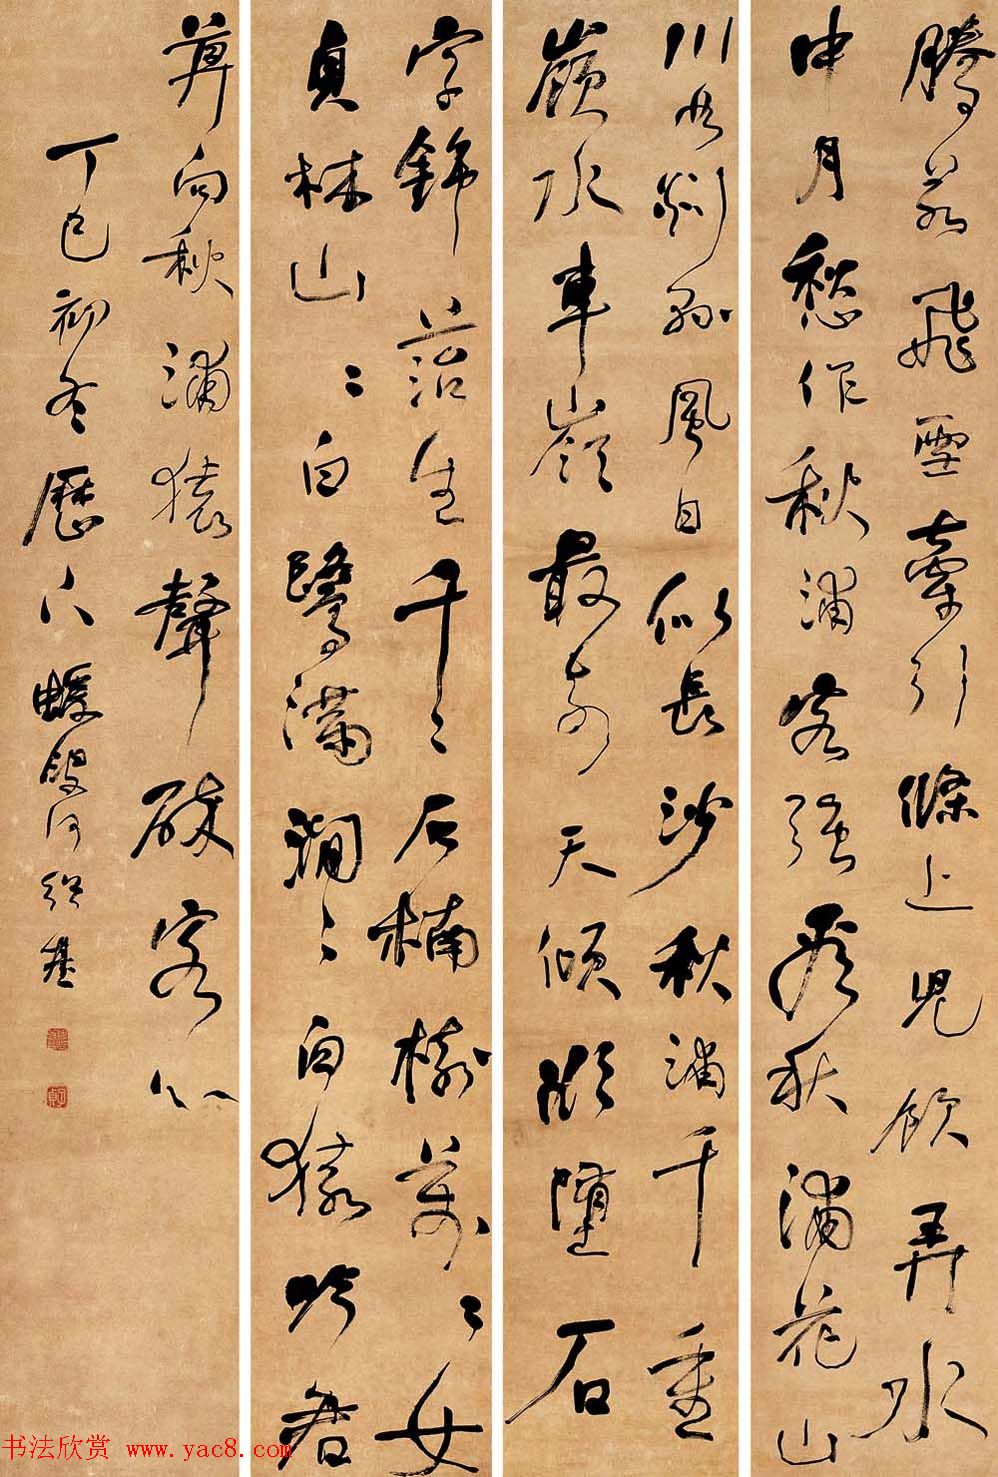 騰若飛雪牽引條上兒飲弄水
中月愁作秋浦客强看秋浦花山
川如剡縣風日似長沙秋浦千重
嶺水車嶺最奇天傾欲墮石
字錦苔生千〻石楠樹萬〻女
貞林山〻白鷺滿澗〻白猿吟君
莫向秋浦猿聲碎客心
丁巳初冬歷下蝯叟何紹基
书法欣赏 www.yac8.com